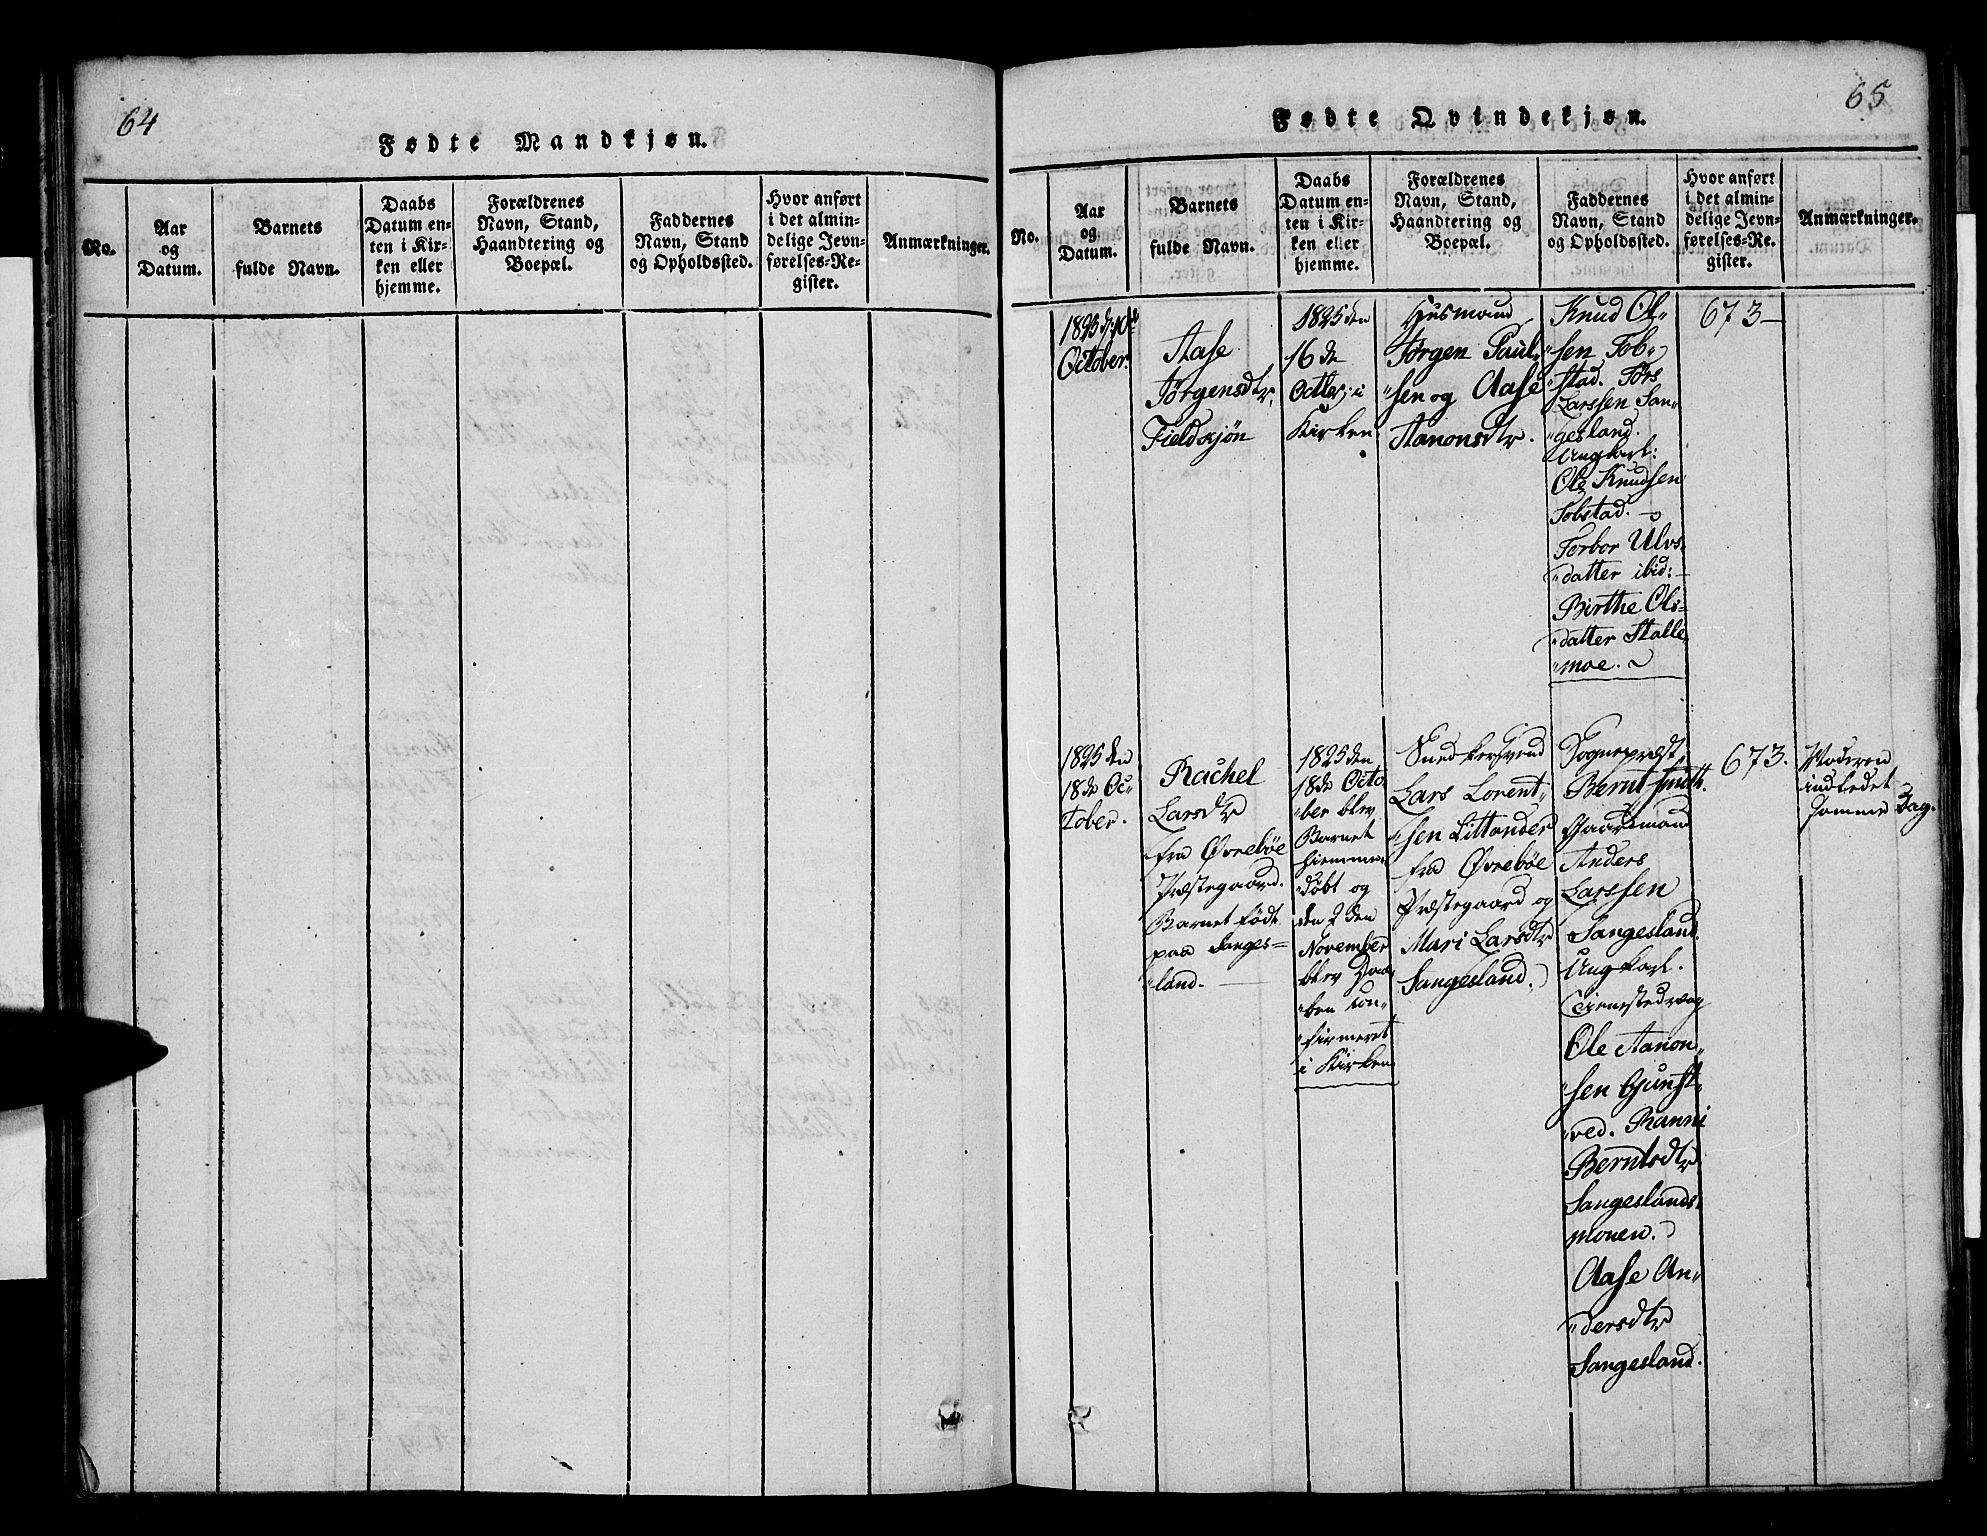 64
Fødte Mandkjøn.
No.
Aar
og
Datum.
Barnets
fulde Navn.
Daabs
Datum en-
ten i Kir-
ken eller
hjemme.
Forældrenes
Navn, Stand,
Haandtering og
Boepæl.
Faddernes
Navn, Stand
og Opholdssted.
Hvor anført
i det almin-
delige Jevn-
førelses-Re-
gister.
Anmærkninger.
65
Fødte Qvindekjøn.
No.
Aar
og
Datum.
Barnets
fulde Navn.
Daabs
Datum en-
ten i Kir-
ken eller
hjemme.
Forældrenes
Navn, Stand,
Haandtering og
Boepæl.
Faddernes
Navn, Stand
og Opholdssted.
Hvor anført
i det almin-
delige Jevn-
førelses-Re-
gister.
Anmærkninger.
1825 d: 10de
October.
Aase
Jørgensdtr,
Fieldsjøn
1825 den
16 de
Octbr: i
Kirken
Husmand
Jørgen Paul-
"sen og Aase
Aanonsdtr.
Knud Ol-
"sen Tob-
"stad. Tørs
Larssen San-
"gesland.
Ungkarl:
Ole Knudsen
Tobstad.
Torbor Ulvs-
"datter ibid:
Birthe Ols-
"datter Stalle-
"moe.
673
1825 den
18de Oc-
tober.
Rachel
Larsdtr
fra Øvrebøe
Præstegaard.
Barnet født
paa Sanges-
"land.
1825 den
18de Octo
"ber blev
Barnet
hiemme-
"døbt og
den 2 den
November
blev Daa-
"ben con-
"firmeret
i Kirken
Snedkersvend
Lars Lorent-
"sen Littander
fra Øvrebøe
Præstegaard og
Mari Larsdtr
Sangesland.
Sognepræst
Bernt Smith.
Gaardmand
Anders
Larssen
Sangesland.
Ungkarl.
Tienestedreng
Ole Aanon-
"sen Gunst-
"ved. Ranni
Berntsdtr
Sangeslands-
monen.
Aase An-
"dersdtr
Sangesland.
673.
Moderen
indledet
samme Dag.